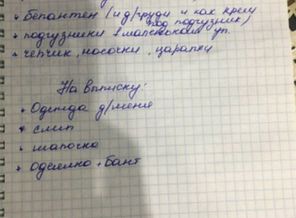 • бепантен (и д/груди и как крем
под подгузник)
• подгузники 1 маленькая уп.
• чепчик, носочки, царапки
На выписку:
• Одежда д/меня
• слип
• шапочка
• одеялко + бант